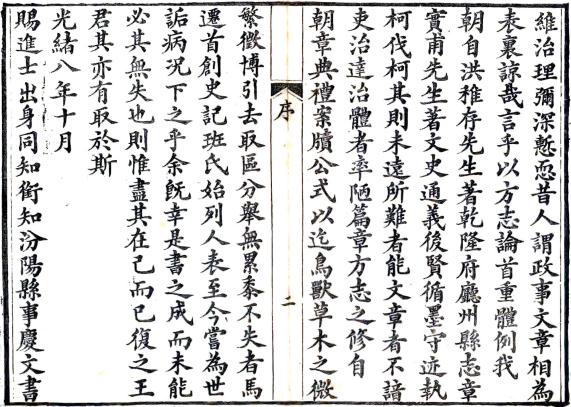 維治理彌深慙恧昔人謂政事文章相為
表裏諒哉言乎以方志論首重體例我
朝自洪稚存先生著乾隆府廳州縣志章
實甫先生著文史通義後賢循墨守迹執
柯伐柯其則未遠所難者能文章者不諳
吏治達治體者率陋篇章方志之修自
朝章典禮案牘公式以迄鳥獸草木之微
序
二
繁徵博引去取區分舉無累黍不失者馬
遷首創史記班氏始列人表至今嘗為世
詬病況下之乎余既幸是書之成而未能
必其無失也則惟盡其在己而已復之王
君其亦有取於斯
光緒八年十月
賜進士出身同知銜知汾陽縣事慶文書